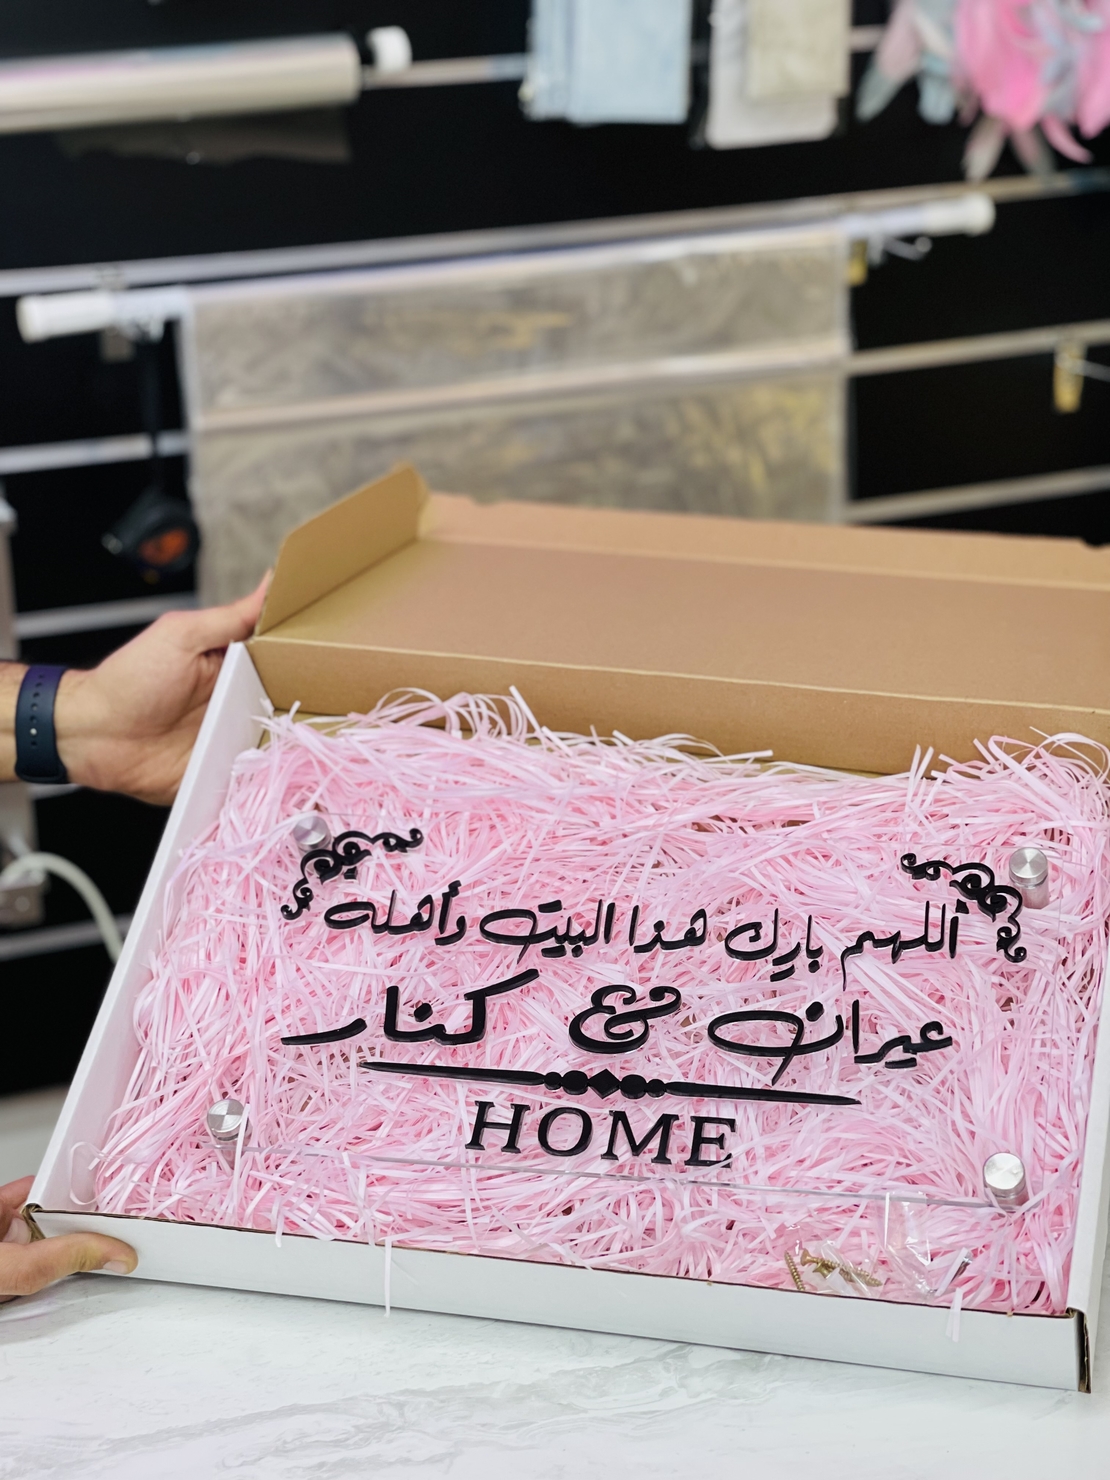 أللهم بارك هذا البيت وأهله
عيران & كنار
HOME